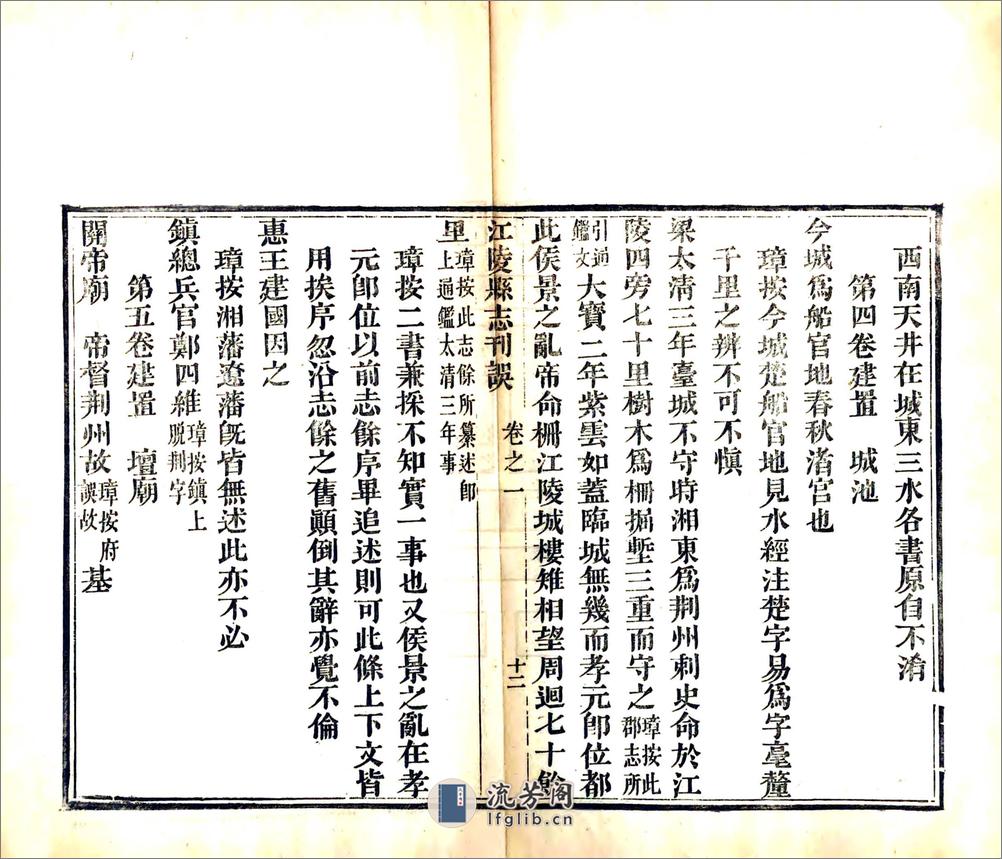 西南天井在城東三水各書原自不淆
第四卷建置　城池
今城爲船官地春秋渚宮也
璋按今城楚船官地見水經注楚字易爲字毫釐
千里之辨不可不愼
梁太淸三年臺城不守時湘東爲荆州刺史命於江
陵四旁七十里樹木爲柵掘塹三重而守之璋按此郡志所
引通鑑文大寶二年紫雲如蓋臨城無幾而孝元卽位都
此侯景之亂帝命柵江陵城樓雉相望周迴七十餘
江陵縣志刊誤　卷之一　十二
里璋按此志餘所纂述卽上通鑑太淸三年事
璋按二書兼採不知實一事也又侯景之亂在孝
元卽位以前志餘序畢追述則可此條上下文皆
用挨序忽沿志餘之舊顚倒其辭亦覺不倫
惠王建國因之
璋按湘藩遼藩旣皆無述此亦不必
鎭總兵官鄭四維璋按鎭上脫荆字
第五卷建置　壇廟
關帝廟　帝督荆州故璋按府誤故基
流芳阁
lfglib.cn